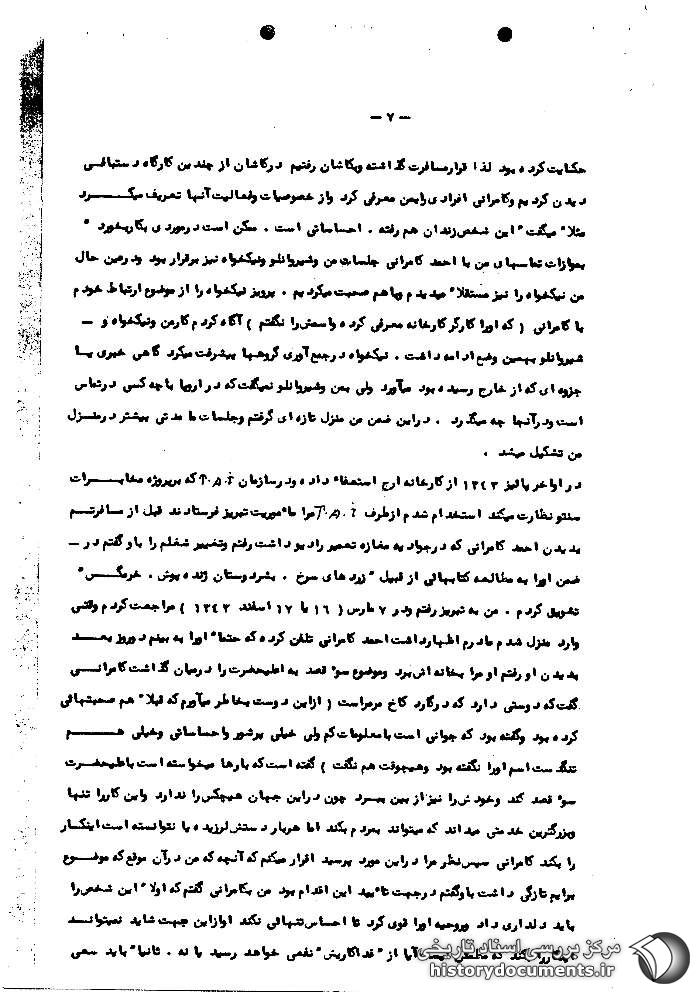 - ۷ -
حکایت کرده بود لذا قرار مسافرت گذاشته وبکاشان رفتیم درکاشان از چندین کارگاه دستبافی
دیدن کردیم وکامرانی افرادی رابمن معرفی کرد واز خصوصیات وفعالیت آنها تعریف میکرد
مثلا" میگفت "این شخص زندان هم رفته . احساساتی است . ممکن است درموردی بکاربخورد "
بموازات تماسهای من با احمد کامرانی جلسات من وشیروانلو ونیکخواه نیز برقرار بود ودرعین حال
من نیکخواه را نیز مستقلا" میدیدم وباهم صحبت میکردیم . پرویز نیکخواه را از موضوع ارتباط خودم
با کامرانی ( که اورا کارگر کارخانه معرفی کرده واسمش را نگفتم ) آگاه کردم کارمن ونیکخواه و -
شیروانلو بهمین وضع ادامه داشت . نیکخواه درجمع آوری گروهها پیشرفت میکرد گاهی خبری یا
جزوه ای که از خارج رسیده بود میآورد ولی بمن وشیروانلو نمیگفت که در اروپا باچه کسی درتماس
است ودرآنجا چه میگذرد . دراین ضمن من منزل تازه ای گرفتم وجلسات ما مدتی بیشتر درمنزل
من تشکیل میشد .
در اواخر پائیز ۱۳۴۳ از کارخانه ارج استعفا" داده ودرسازمان که برپروژه مخابرات
سنتو نظارت میکند استخدام شدم ازطرف مرا ما"موریت تبریز فرستادند قبل از مسافرتم
بدیدن احمد کامرانی که درجوادیه مغازه تعمیر رادیو داشت رفتم وتغییر شغلم را باو گفتم در -
ضمن اورا به مطالعه کتابهائی از قبیل "زردهای سرخ . بشردوستان ژنده پوش . خرمگس "
تشویق کردم . من به تبریز رفتم ودر ۷ مارس ( ۱۶ یا ۱۷ اسفند ۱۳۴۳ ) مراجعت کردم وقتی
وارد منزل شدم مادرم اظهارداشت احمد کامرانی تلفن کرده که حتما" اورا به بینم دوروز بعد
بدیدن او رفتم او مرا بخانه اش برد وموضوع سو" قصد به اعلیحضرت را درمیان گذاشت کامرانی
گفت که دوستی دارد که درگارد کاخ مرمراست ( ازاین دوست بخاطر میآورم که قبلا" هم صحبتهائی
کرده بود وگفته بود که جوانی است با معلومات کم ولی خیلی پرشور واحساساتی وخیلی هم
تنگدست اسم اورا نگفته بود وهیچوقت هم نگفت ) گفته است که بارها میخواسته است باعلیحضرت
سو" قصد کند وخودش را نیز از بین ببرد چون دراین جهان هیچکس را ندارد واین کاررا تنها
وبزرگترین خدمتی میداند که میتواند بمردم بکند اما هربار دستش لرزیده یا نتوانسته است اینکار
را بکند کامرانی سپس نظر مرا دراین مورد پرسید اقرار میکنم که آنچه که من درآن موقع که موضوع
برایم تازگی داشت باوگفتم درجهت تا"یید این اقدام بود من بکامرانی گفتم که اولا" این شخص را
باید دلداری داد وروحیه اورا قوی کرد تا احساس تنهائی نکند اوازاین جهت شاید نمیتوانسته
کند که مطمئن نیست آیا از "فداکاریش" نفعی خواهد رسید یا نه . ثانیا" باید سعی
مرکز بررسی اسناد تاریخی
historydocuments.ir